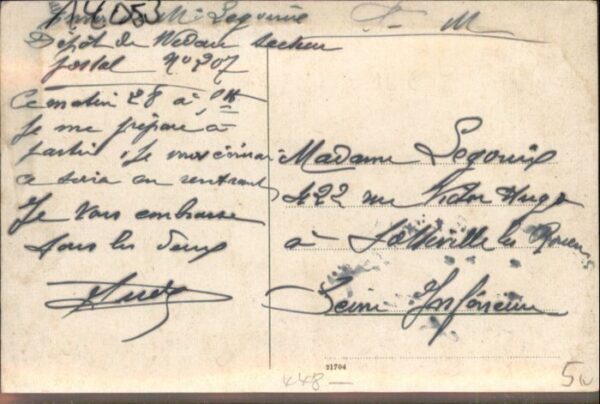 14053
Mr Legouix
Dépôt de secteur
postal No 207
F. M.
Ce matin 28 à
Je me prépare à
partir. Je vous écrirai
ce soir en rentrant
Je vous embrasse
tous les deux
Madame Legouix
422 rue Victor Hugo
à Sotteville les Rouen
Seine Inférieure
21704
448 -
5